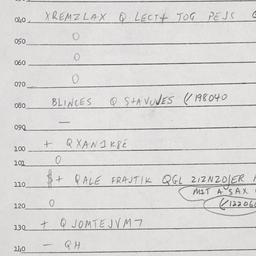 040. XREMZLAX Q LECTT TOG PEJS
050 0
060 0
070 0
080 BLINCES Q STAVUVES (/198040
090 —
100 + QXANIK8E
101 0
110 $+ QALE FRAJTIK QGL ZIZNZOJER
MIT A SAX
120 0 (/122060
130 + Q JOMTEJVM7
140 — QH